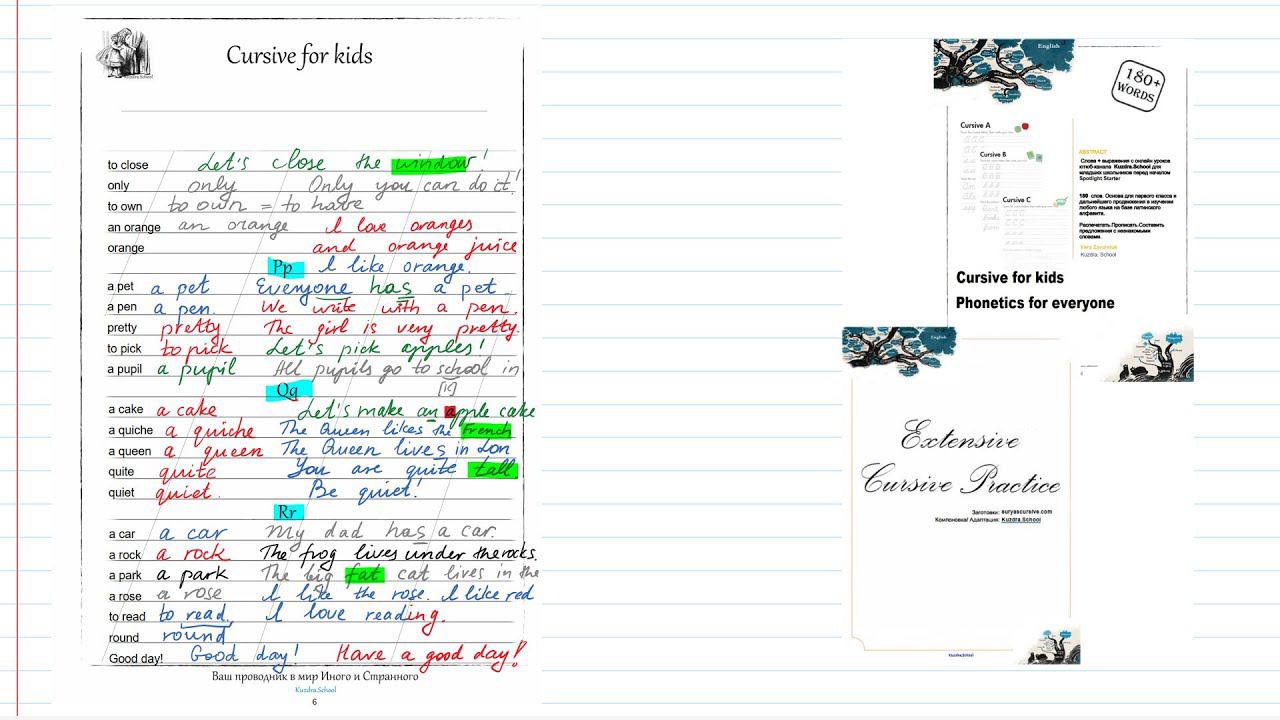 Kuzdra.School
Cursive for kids
to close Let's close the window!
only only Only you can do it!
to own to own to have
an orange I love oranges
orange and orange juice
Pp I like orange.
a pet a pet Everyone has a pet.
a pen a pen. We write with a pen.
pretty pretty The girl is very pretty.
to pick to pick Let's pick apples!
a pupil a pupil All pupils go to school in
Qq
a cake a cake Let's make an apple cake
a quiche a quiche The Queen likes the French
a queen a queen The Queen lives in Lon
quite quite You are quite tall.
quiet quiet. Be quiet!
Rr
a car a car My dad has a car.
a rock a rock The frog lives under the rocks.
a park a park The big fat cat lives in the
a rose a rose I like the rose. I like red
to read to read, I love reading.
round round
Good day! Good day! Have a good day!
Ваш проводник в мир Иного и Странного
Kuzdra.School
6
English
180+
WORDS
Cursive A
Cursive B
Cursive C
ABSTRACT
Слова + выражения с онлайн уроков
ютюб-канала Kuzdra.School для
младших школьников перед началом
Spotlight Starter
180 слов. Основа для первого класса и
дальнейшего продвижения в изучении
любого языка на базе латинского
алфавита.
Распечатать.Прописать.Составить
предложения с незнакомыми
словами.
Vera Zavalniuk
Kuzdra. School
Cursive for kids
Phonetics for everyone
English
Extensive
Cursive Practice
Заготовки: suryascursive.com
Компоновка/ Адаптация: Kuzdra.School
Kuzdra.School